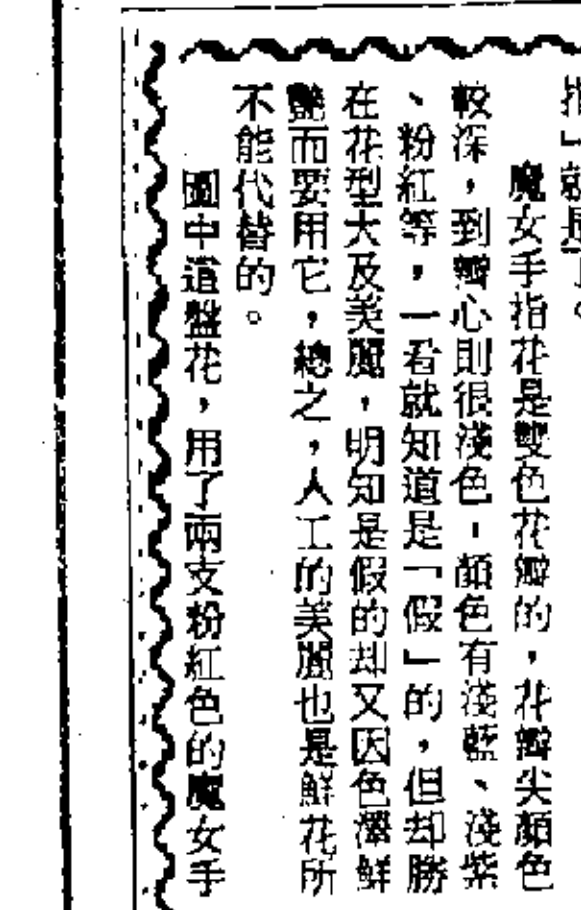 指」就是了。
魔女手指花是雙色花瓣的，花瓣尖顏色
較深，到瓣心則很淺色，顏色有淺藍、淺紫
、粉紅等，一看就知道是「假」的，但却勝
在花型大及美麗，明知是假的却又因色澤鮮
艷而要用它，總之，人工的美麗也是鮮花所
不能代替的。
圖中這盤花，用了兩支粉紅色的魔女手